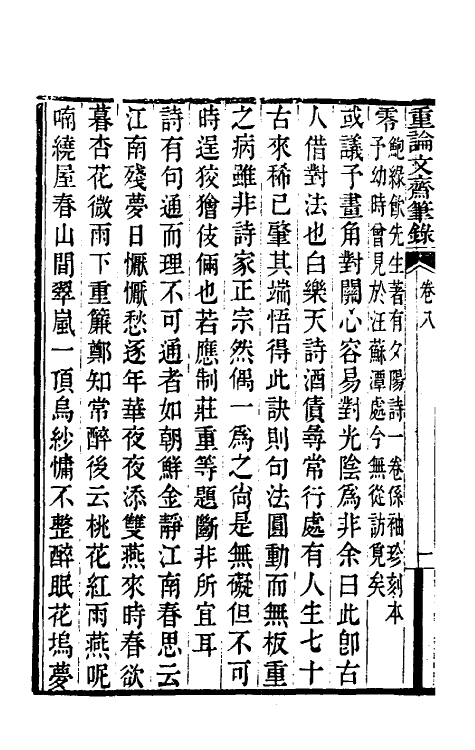 重論文齋筆錄 卷八 一
零 鮑綠飲先生著有夕陽詩一卷係袖珍刻本
予幼時曾見於汪蘇潭處今無從訪覓矣
或議予畫角對關心容易對光陰為非余曰此卽古
人借對法也白樂天詩酒債尋常行處有人生七十
古來稀已肇其端悟得此訣則句法圓動而無板重
之病雖非詩家正宗然偶一為之尚是無礙但不可
時逞狡獪伎倆也若應制莊重等題斷非所宜耳
詩有句通而理不可通者如朝鮮金靜江南春思云
江南殘夢日懨懨愁逐年華夜夜添雙燕來時春欲
暮杏花微雨下重簾鄭知常醉後云桃花紅雨燕呢
喃繞屋春山間翠嵐一頂烏紗慵不整醉眠花塢夢